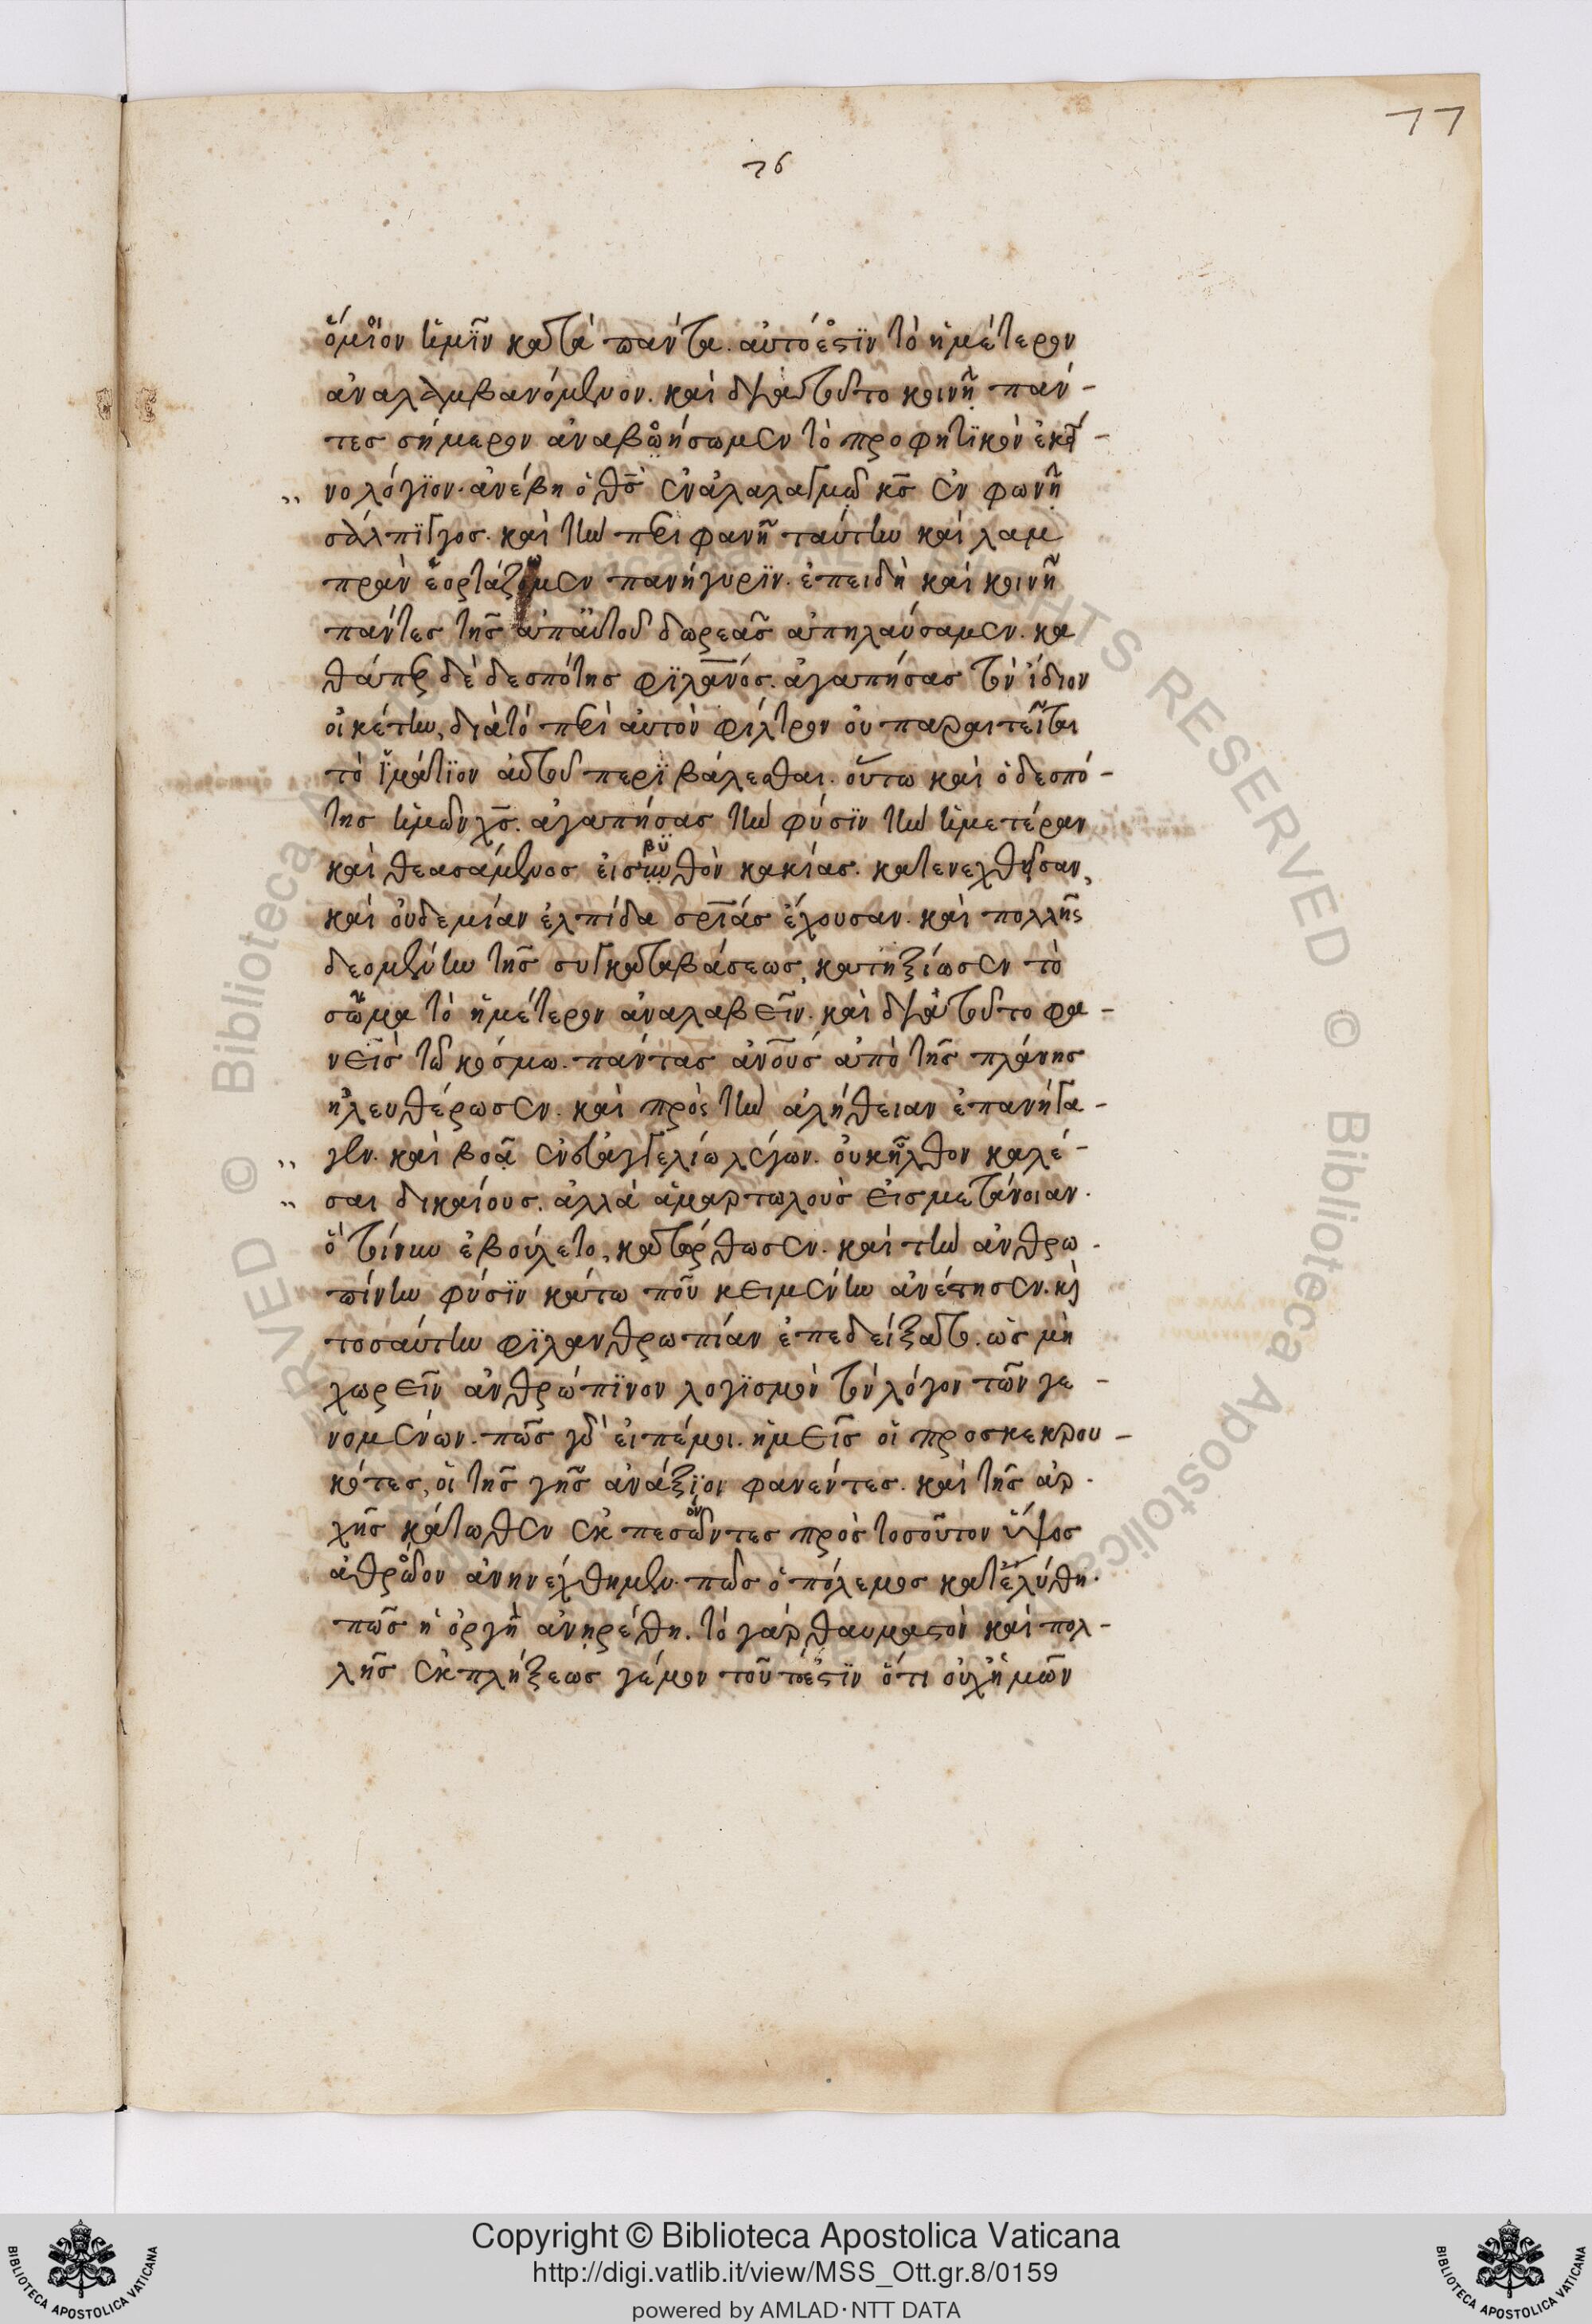 77
76
ὅμοιον ἡμῖν κατὰ πάντα. αὐτό ἐστϊν τὸ ἡμέτερον
ἀναλαμβανόμενον. καὶ διὰ τοῦτο κοινῇ πάν-
τες σήμερον ἀναβοήσωμεν τὸ προφητϊκὸν ἐκεῖ-
νο λόγϊον. ἀνέβη ὁ θς ἐν ἀλαλαγμῷ κς ἐν φωνῇ
σάλπϊγγος. καὶ τὴν περιφανῆ ταύτην καὶ λαμ
πρὰν ἑορτάζωμεν πανήγυρϊν. ἐπειδὴ καὶ κοινῇ
πάντες τῆς ἀπ' αὐτοῦ δωρεᾶς ἀπηλαύσαμεν. κα
θάπερ δὲ δεσπότης φϊλανος. ἀγαπήσας τὸν ἴδιον
οἰκέτην, διὰ τὸ περὶ αὐτὸν φίλτρον οὐ παραιτεῖται
τὸ ἱμάτϊον αὐτοῦ περϊβάλεσθαι. οὕτω καὶ ὁ δεσπό-
της ἡμῶν χς. ἀγαπήσας τὴν φύσϊν τὴν ἡμετέραν
καὶ θεασάμενος εἰς βυθὸν κακίας. κατενεχθῆσαν,
καὶ οὐδεμίαν ἐλπίδα σριας ἔχουσαν. καὶ πολλῆς
δεομένην τῆς συγκαταβάσεως, κατηξίωσεν τὸ
σῶμα τὸ ἡμέτερον ἀναλαβεῖν. καὶ διὰ τοῦτο φα-
νεὶς τῷ κόσμω. πάντας ἀνους ἀπὸ τῆς πλάνης
ἠλευθέρωσεν. καὶ πρὸς τὴν ἀλήθειαν ἐπανήγα-
γεν. καὶ βοᾷ ἐν εὐαγγελίω λέγων. οὐκ ἦλθον καλέ-
σαι δικαίους. ἀλλὰ ἁμαρτωλοὺς εἰς μετάνοιαν.
ὃ τοίνυν ἐβούλετο, κατόρθωσεν. καὶ τὴν ἀνθρω-
πίνην φύσϊν κάτω που κειμένην ἀνέστησεν. κὶ
τοσαύτην φϊλανθρωπίαν ἐπεδείξατο. ὡς μὴ
χωρεῖν ἀνθρώπϊνον λογϊσμὸν τὸν λόγον τῶν γε-
νομένων. πῶς γὰρ εἰπέ μοι. ἡμεῖς οἱ προσκεκρου-
κότες, οἱ τῆς γῆς ἀνάξϊοι φανέντες. καὶ τῆς ἀρ-
χῆς κάτωθεν ἐκπεσόντες πρὸς τοσοῦτον ὕψος
ἀθρόον ἀνηνέχθημεν. πῶς ὁ πόλεμος κατελύθη.
πῶς ἡ ὀργὴ ἀνῃρέθη. τὸ γὰρ θαυμαστὸν καὶ πολ-
λῆς ἐκπλήξεως γέμον τοῦτό ἐστϊν ὅτι οὐχ ἡμῶν
Copyright © Biblioteca Apostolica Vaticana
http://digi.vatlib.it/view/MSS_Ott.gr.8/0159
powered by AMLAD·NTT DATA